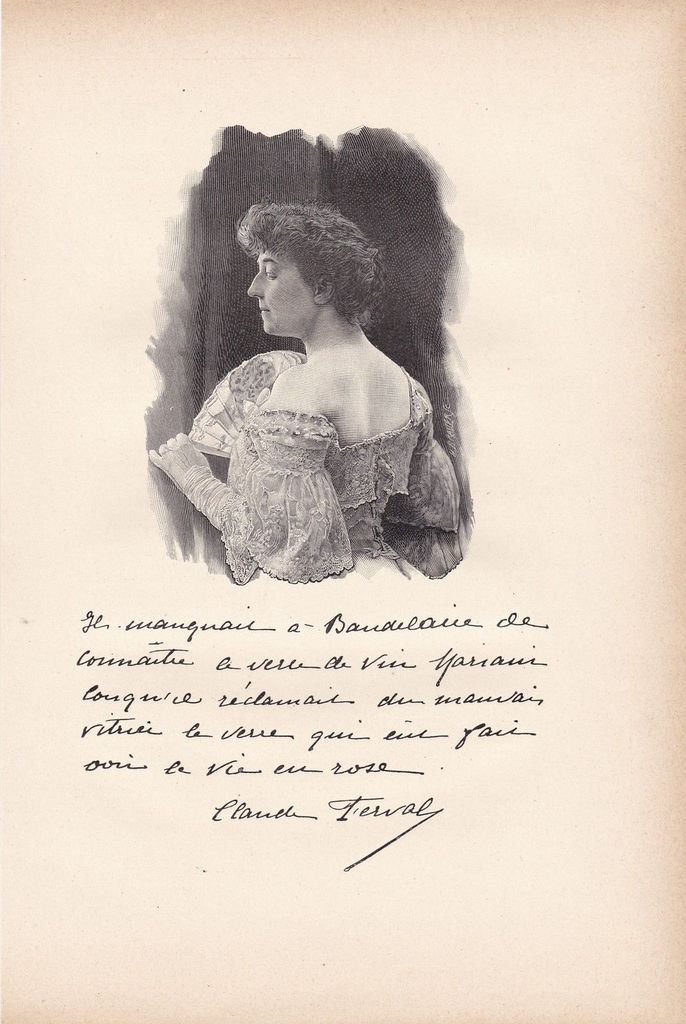 Il manquait à Baudelaire de
connaître le verre de Vin Mariani
lorsqu'il réclamait du mauvais
vitrier le verre qui eût fait
voir la vie en rose.
Claude Ferval